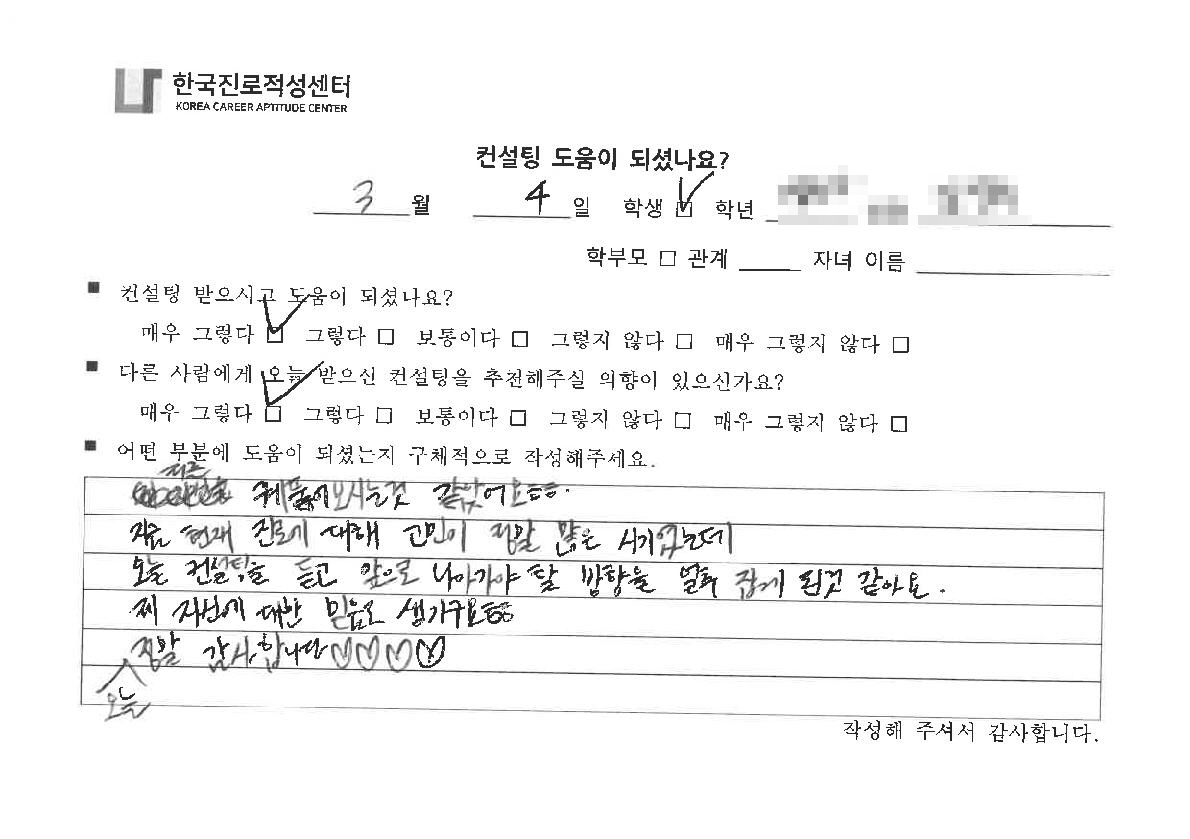 한국진로적성센터
KOREA CAREER APTITUDE CENTER
컨설팅 도움이 되셨나요?
3월 4일 학생 ☑ 학년
학부모 □ 관계 자녀 이름
■ 컨설팅 받으시고 도움이 되셨나요?
매우 그렇다 ☑ 그렇다 □ 보통이다 □ 그렇지 않다 □ 매우 그렇지 않다 □
■ 다른 사람에게 오늘 받으신 컨설팅을 추천해주실 의향이 있으신가요?
매우 그렇다 ☑ 그렇다 □ 보통이다 □ 그렇지 않다 □ 매우 그렇지 않다 □
■ 어떤 부분에 도움이 되셨는지 구체적으로 작성해주세요.
오시는것 같았어요ㅎㅎ.
지금 현재 진로에 대해 고민이 정말 많은 시기였는데
오늘 컨설팅을 듣고 앞으로 나아가야 할 방향을 얼추 잡게 된것 같아요.
제 자신에 대한 믿음도 생기구요ㅎㅎ
정말 감사합니다♡♡♡♡
오늘
작성해 주셔서 감사합니다.